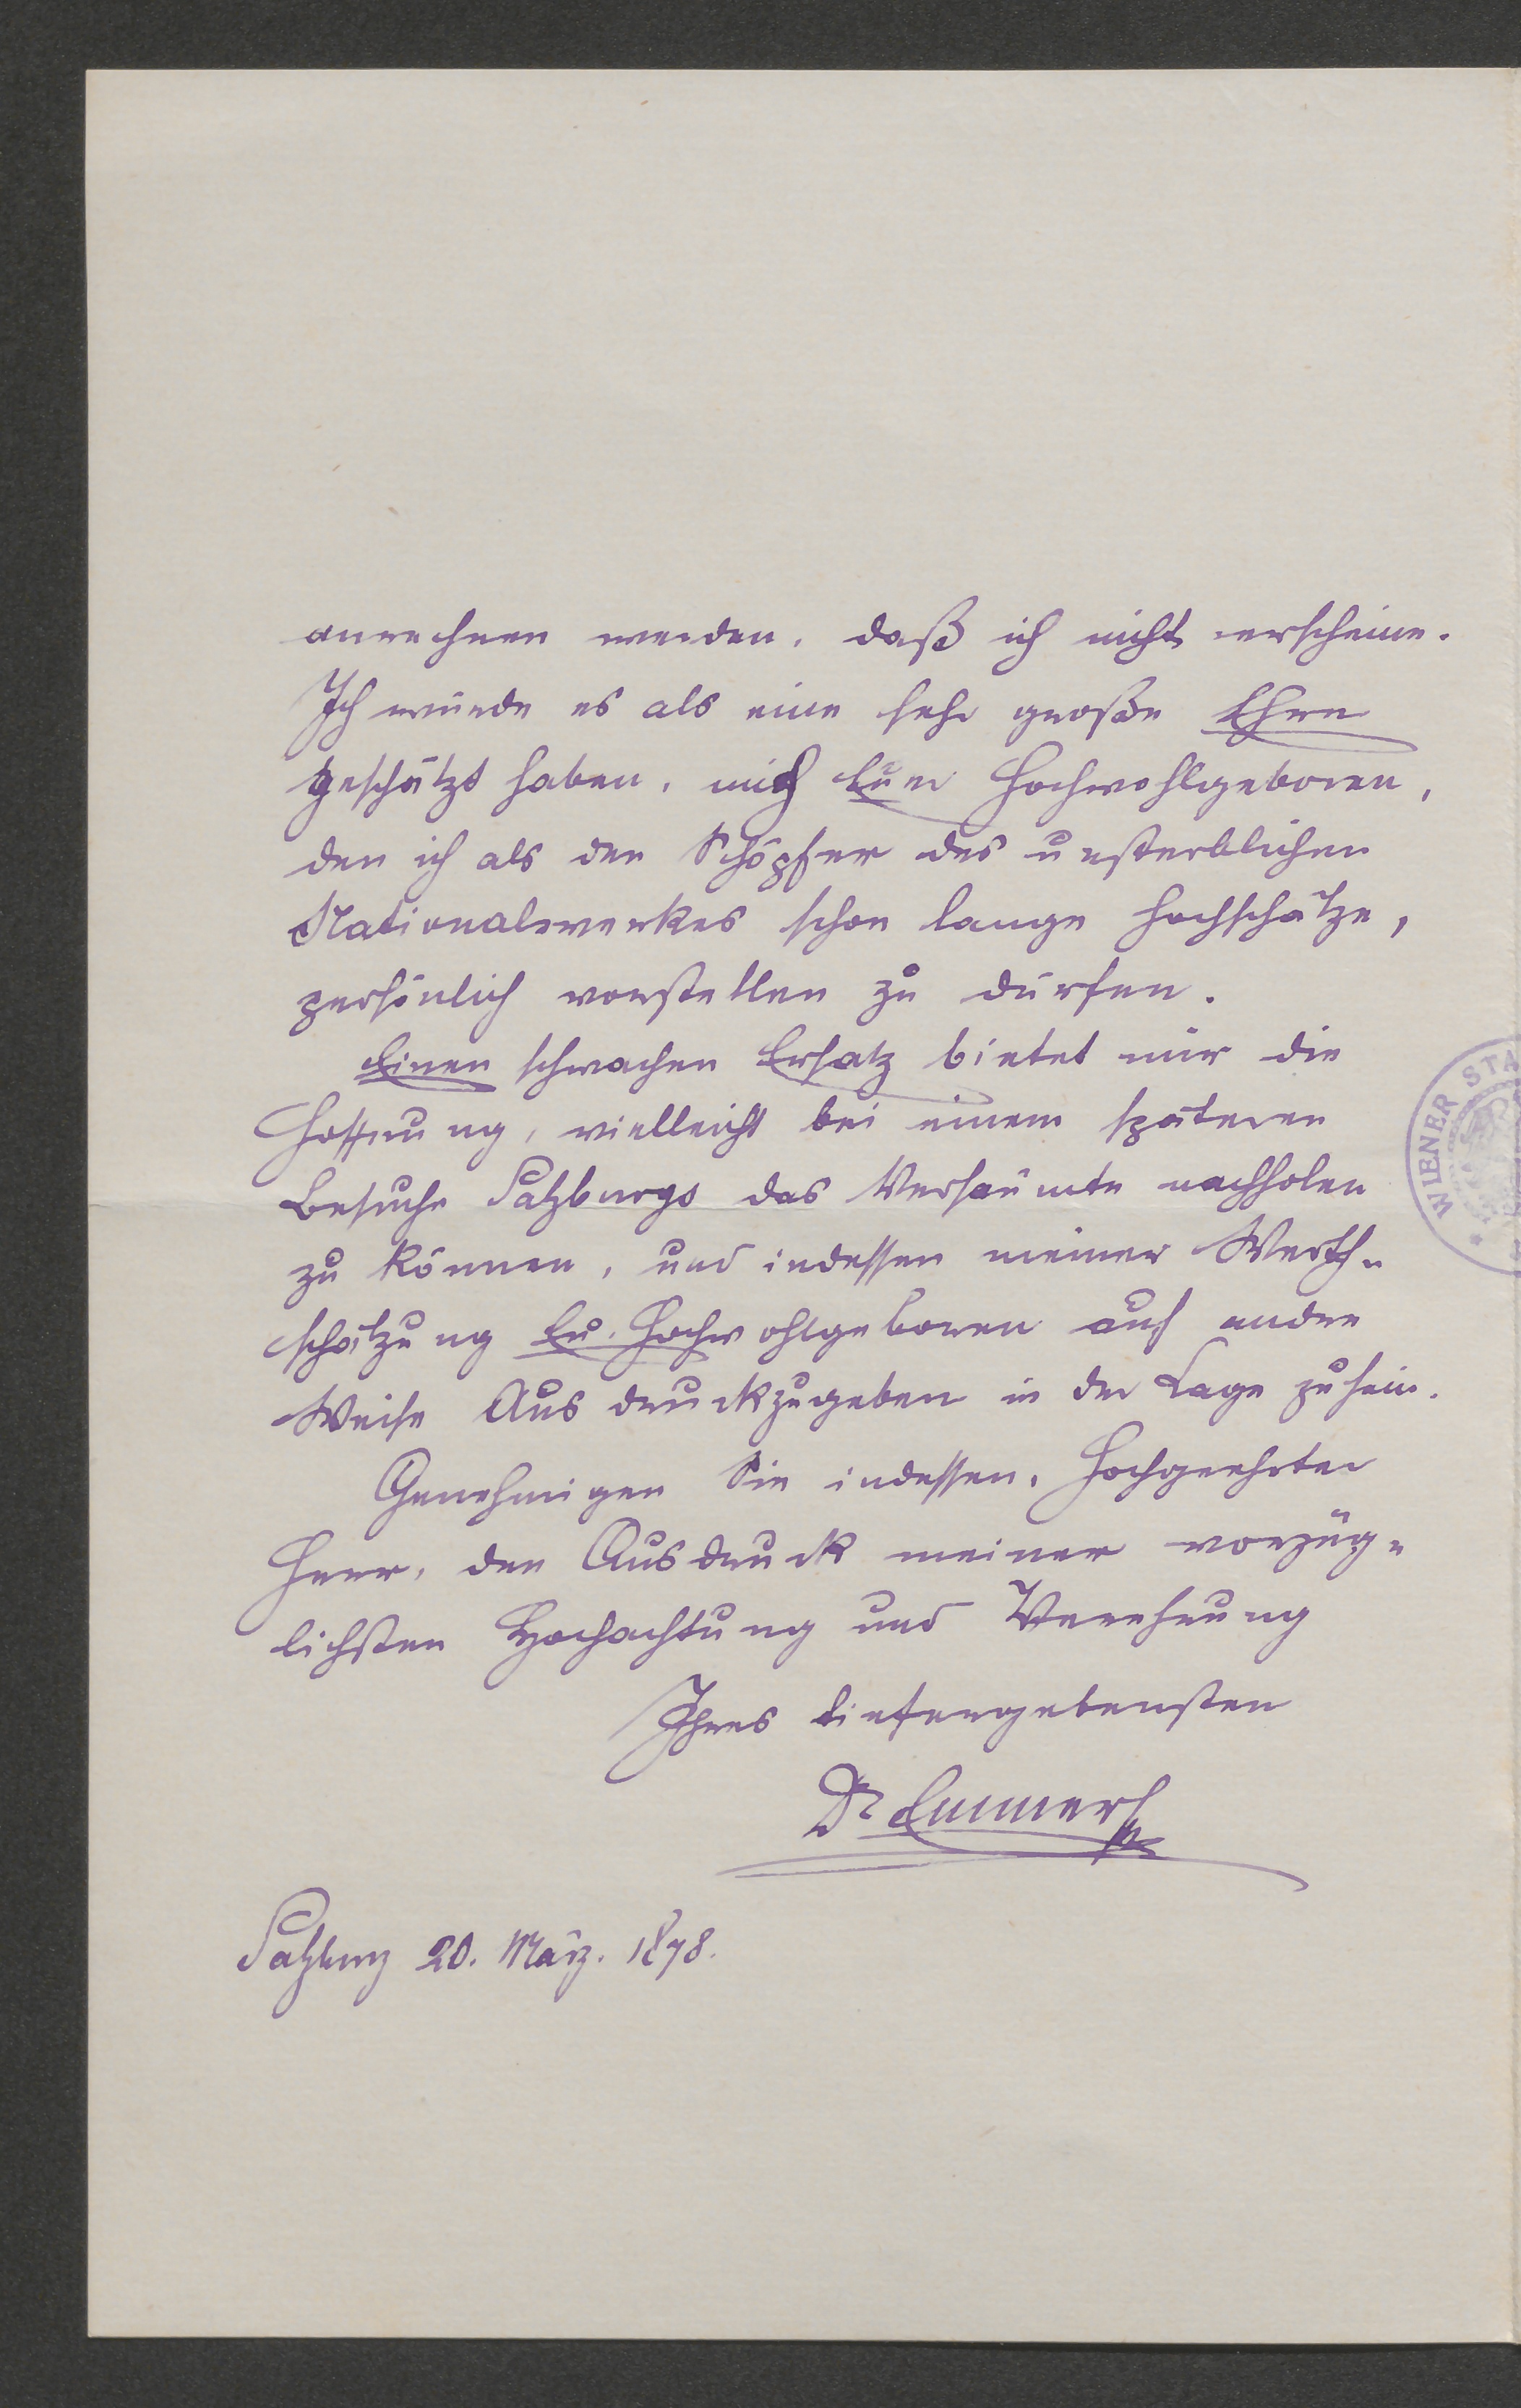 anrechnen werden, daß ich nicht erscheine.
Ich würde es als eine sehr große Ehre
geschätzt haben, mich Euer Hochwohlgeboren,
den ich als den Schöpfer des unsterblichen
Nationalwerkes schon lange hochschätze,
persönlich vorstellen zu dürfen.
Einen schwachen Ersatz bietet mir die
Hoffnung, vielleicht bei einem späteren
Besuche Salzburgs das Versäumte nachholen
zu können, und indessen meiner Werth-
schätzung Eu. Hochwohlgeboren auf andre
Weise Ausdruck zu geben in der Lage zu sein.
Genehmigen Sie indessen, hochgeehrter
Herr, den Ausdruck meiner vorzüg-
lichsten Hochachtung und Verehrung
Ihres tiefergebensten
Dr
Salzburg 20. März. 1878.
WIENER STA